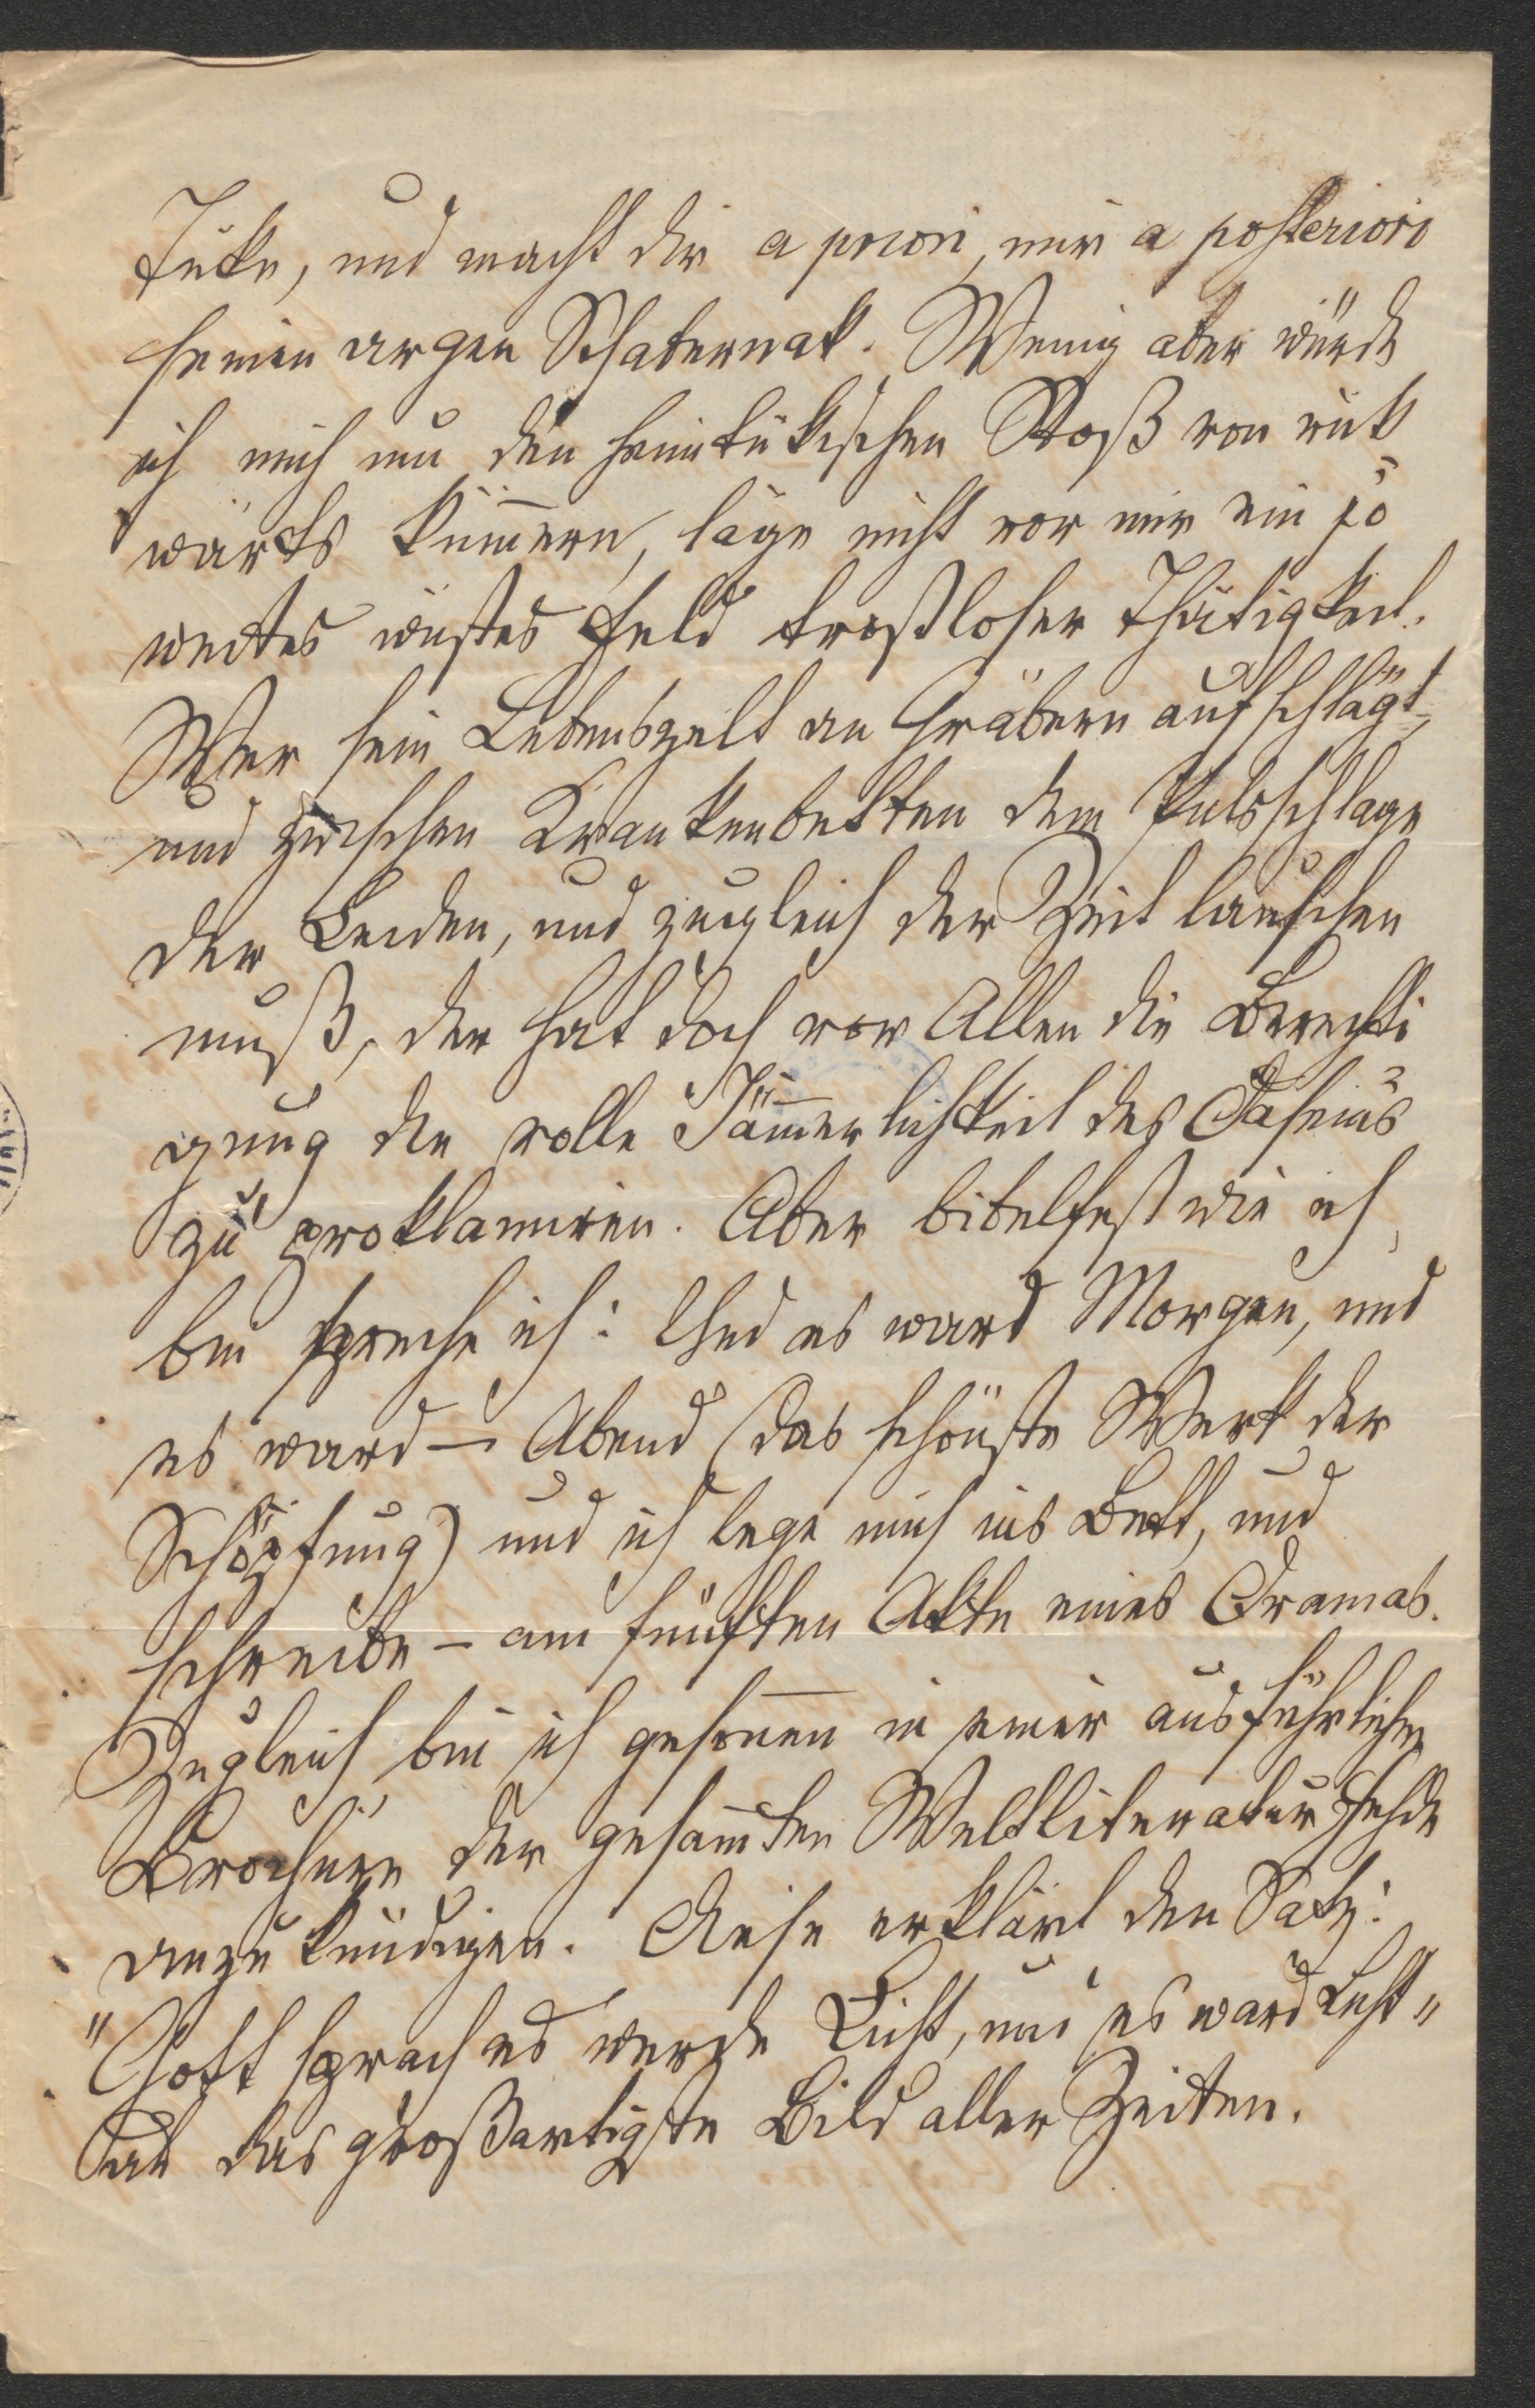 Tüke, und macht dir a priori, mir a posteriori
seinen argen Schabernak. Wenig aber würde
ich mich um den heimtükischen Stoß von rük
wärts kümmern, läge nicht vor mir ein so
weites wüstes Feld trostloser Thätigkeit.
Wer sein Lebenszelt an Gräbern aufschlägt,
und zwischen Krankenbetten dem Pulsschlage
der Leiden, und zugleich der Zeit lauschen
muß, der hat doch vor Allen die Berechti
gung die volle Jämmerlichkeit des Daseins
zu proklamiren. Aber bibelfest wie ich
bin spreche ich: Und es ward Morgen, und
es ward – Abend (das schönste Werk der
Schöpfung) und ich lege mich ins Bett, und
schreibe – am fünften Akte eines Dramas.
Zugleich bin ich gesonnen in einer ausführlichen
Brochure der gesammten Weltliteratur Fehde
anzukündigen. Diese erklärt den Satz:
"Gott sprach es werde Licht, und es ward Licht"
als das großartigste Bild aller Zeiten.